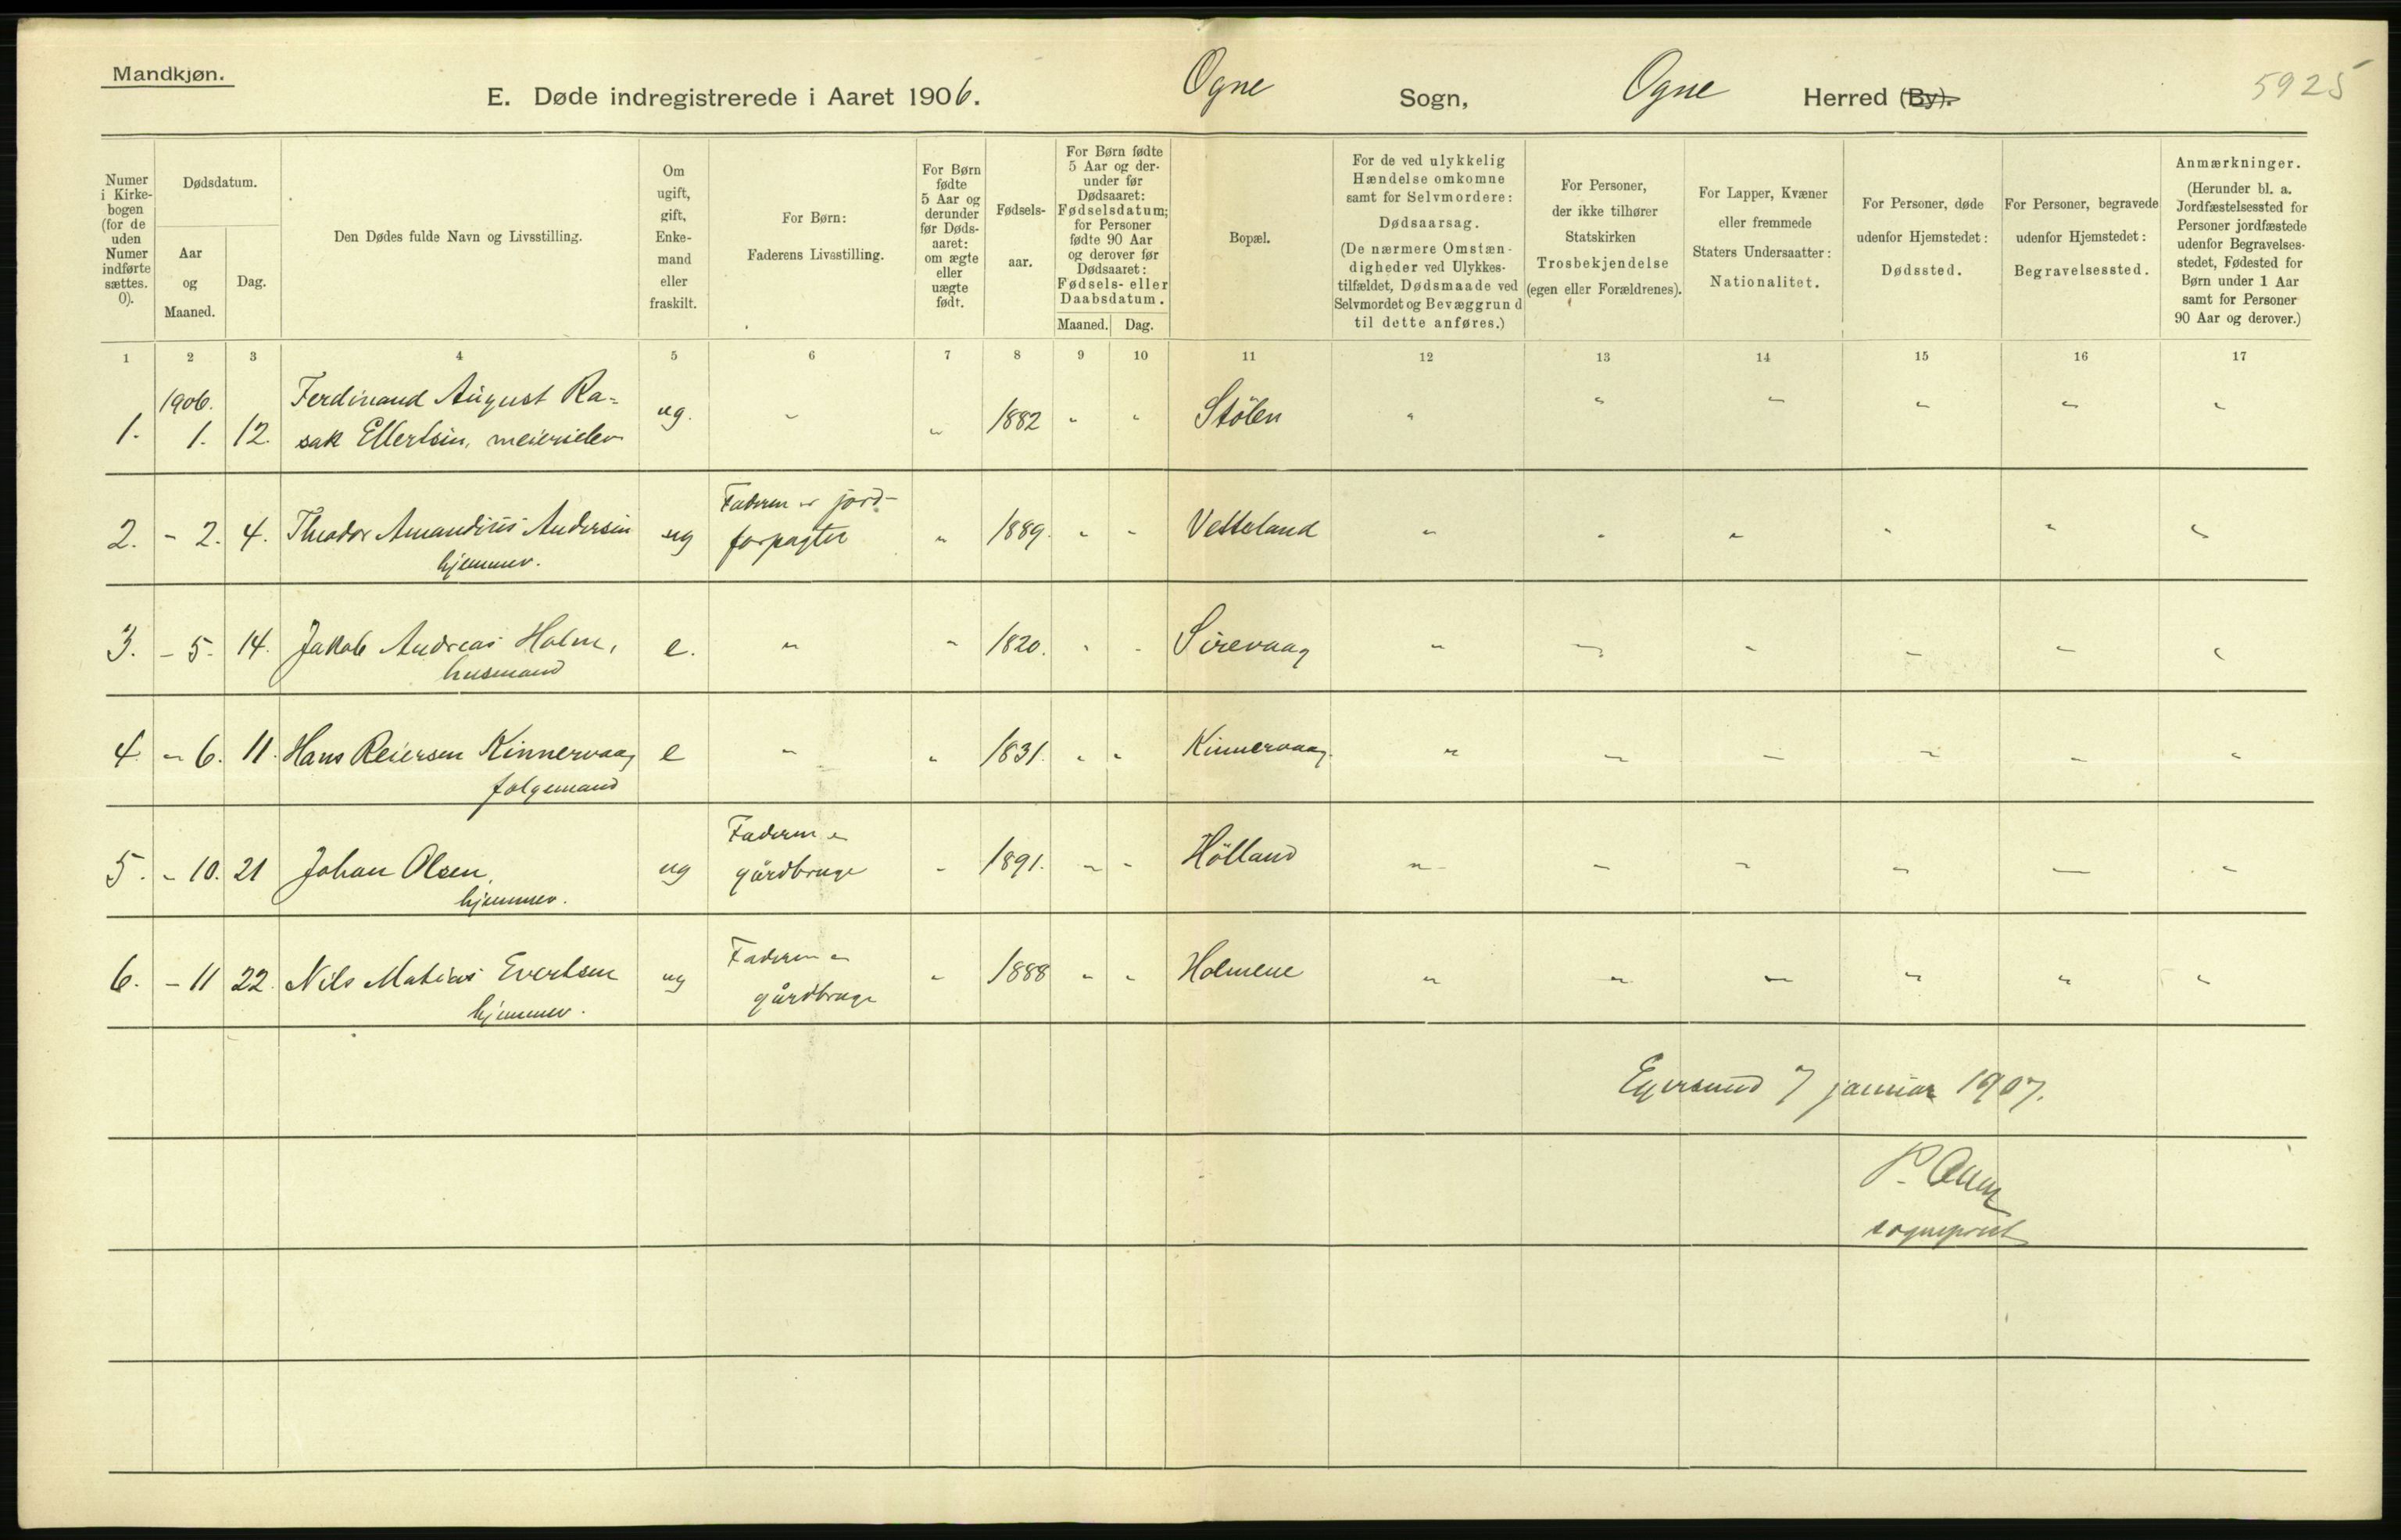 Mandkjøn.
E. Døde indregistrerede i Aaret 1906. Ogne Sogn, Ogne Herred (By).
5925
Numer i Kirke-bogen (for de uden Numer indførte sættes. 0).
Dødsdatum.
Aar og Maaned.
Dag.
Den Dødes fulde Navn og Livsstilling.
Om ugift, gift, Enke-mand eller fraskilt.
For Børn: Faderens Livsstilling.
For Børn fødte 5 Aar og derunder før Døds-aaret: om ægte eller uægte født.
Fødsels-aar.
For Børn fødte 5 Aar og der-under før Dødsaaret: Fødselsdatum; for Personer fødte 90 Aar og derover før Dødsaaret: Fødsels- eller Daabsdatum.
Maaned. Dag.
Bopæl.
For de ved ulykkelig Hændelse omkomne samt for Selvmordere: Dødsaarsag. (De nærmere Omstæn-digheder ved Ulykkes-tilfældet, Dødsmaade ved Selvmordet og Bevæggrund til dette anføres.)
For Personer, der ikke tilhører Statskirken Trosbekjendelse (egen eller Forældrenes).
For Lapper, Kvæner eller fremmede Staters Undersaatter: Nationalitet.
For Personer, døde udenfor Hjemstedet: Dødssted.
For Personer, begravede udenfor Hjemstedet: Begravelsessted.
Anmærkninger. (Herunder bl. a. Jordfæstelsessted for Personer jordfæstede udenfor Begravelses-stedet, Fødested for Børn under 1 Aar samt for Personer 90 Aar og derover.)
1 2 3 4 5 6 7 8 9 10 11 12 13 14 15 16 17
1906.
Ferdinand August Ra=
1. 1. 12. sak Ellertsen, meierielev ug. " " 1882 " " Stölen " " " " " "
Faderen er jord-
2. - 2. 4. Theodor Amandius Andersen ug forpagter " 1889. " " Vetteland " " " " " "
hjemmev.
3. - 5. 14. Jakob Andreas Holm, e. " " 1820. " " Sirevaag " " " " " "
husmand
4. - 6. 11. Hans Reiersen Kinnervaag e " " 1831. " " Kinnervaag. " " " " " "
folgemand
Faderen er
5. - 10. 21 Johan Olsen, ug gårdbruger " 1891. " " Hölland " " " " " "
hjemmev.
Faderen er
6. - 11 22. Nils Matias Evertsen ug gårdbruger " 1888 " " Holmene " " " " " "
hjemmev.
Egersund 7 januar 1907.
sogneprest